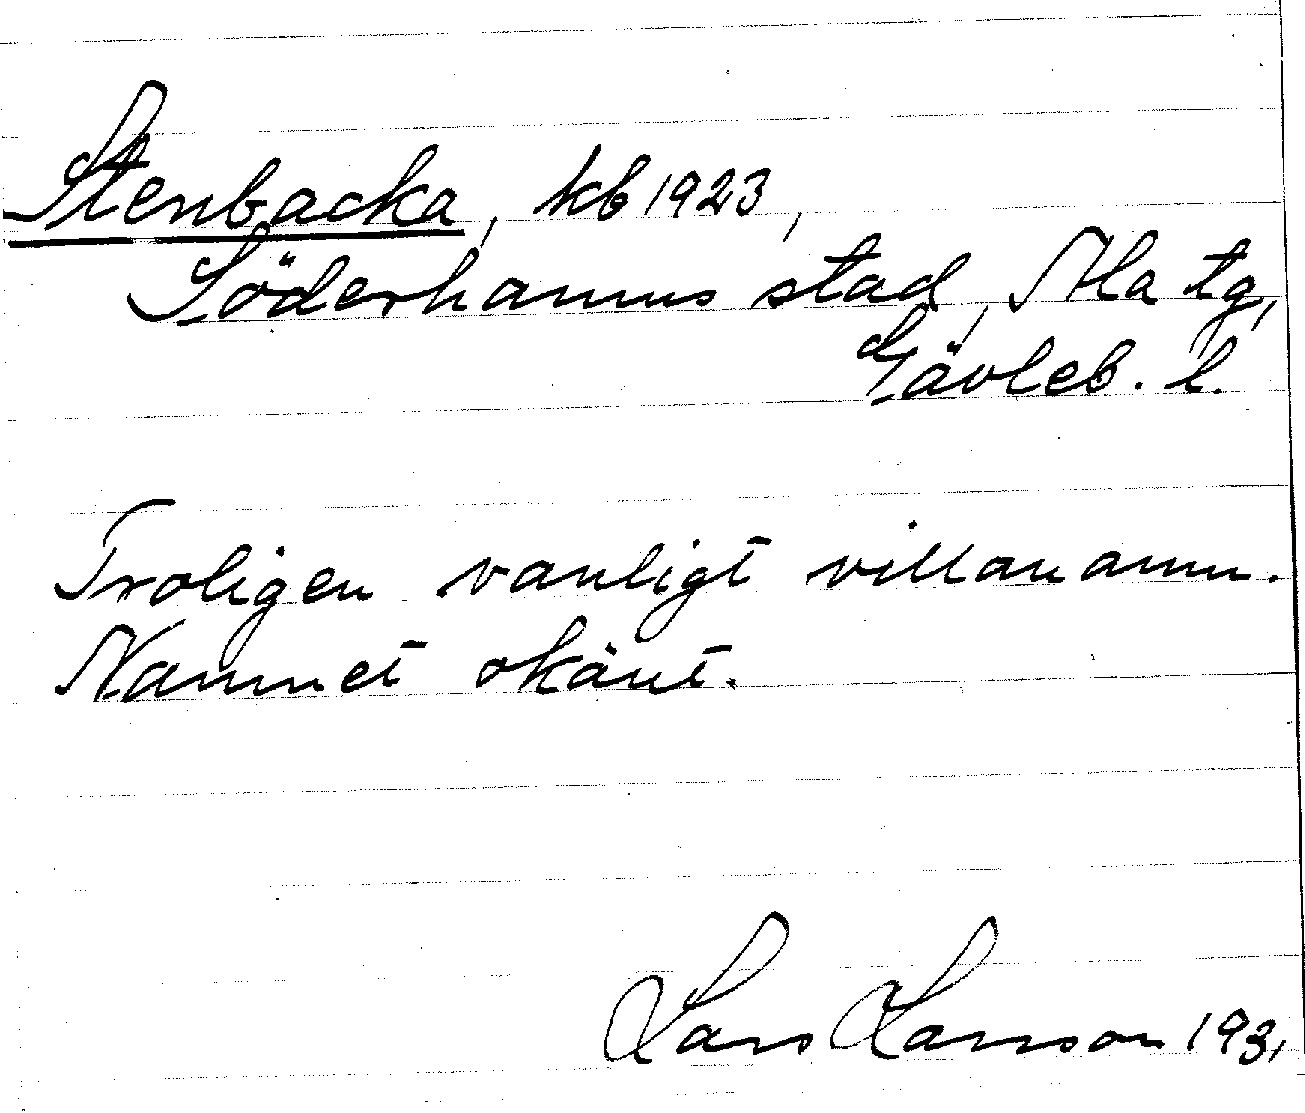 Stenbacka, kb 1923,
Söderhamns stad, Ala tg,
Gävleb. l.
Troligen vanligt villanamn.
Namnet okänt.
Lars Larsson 193,